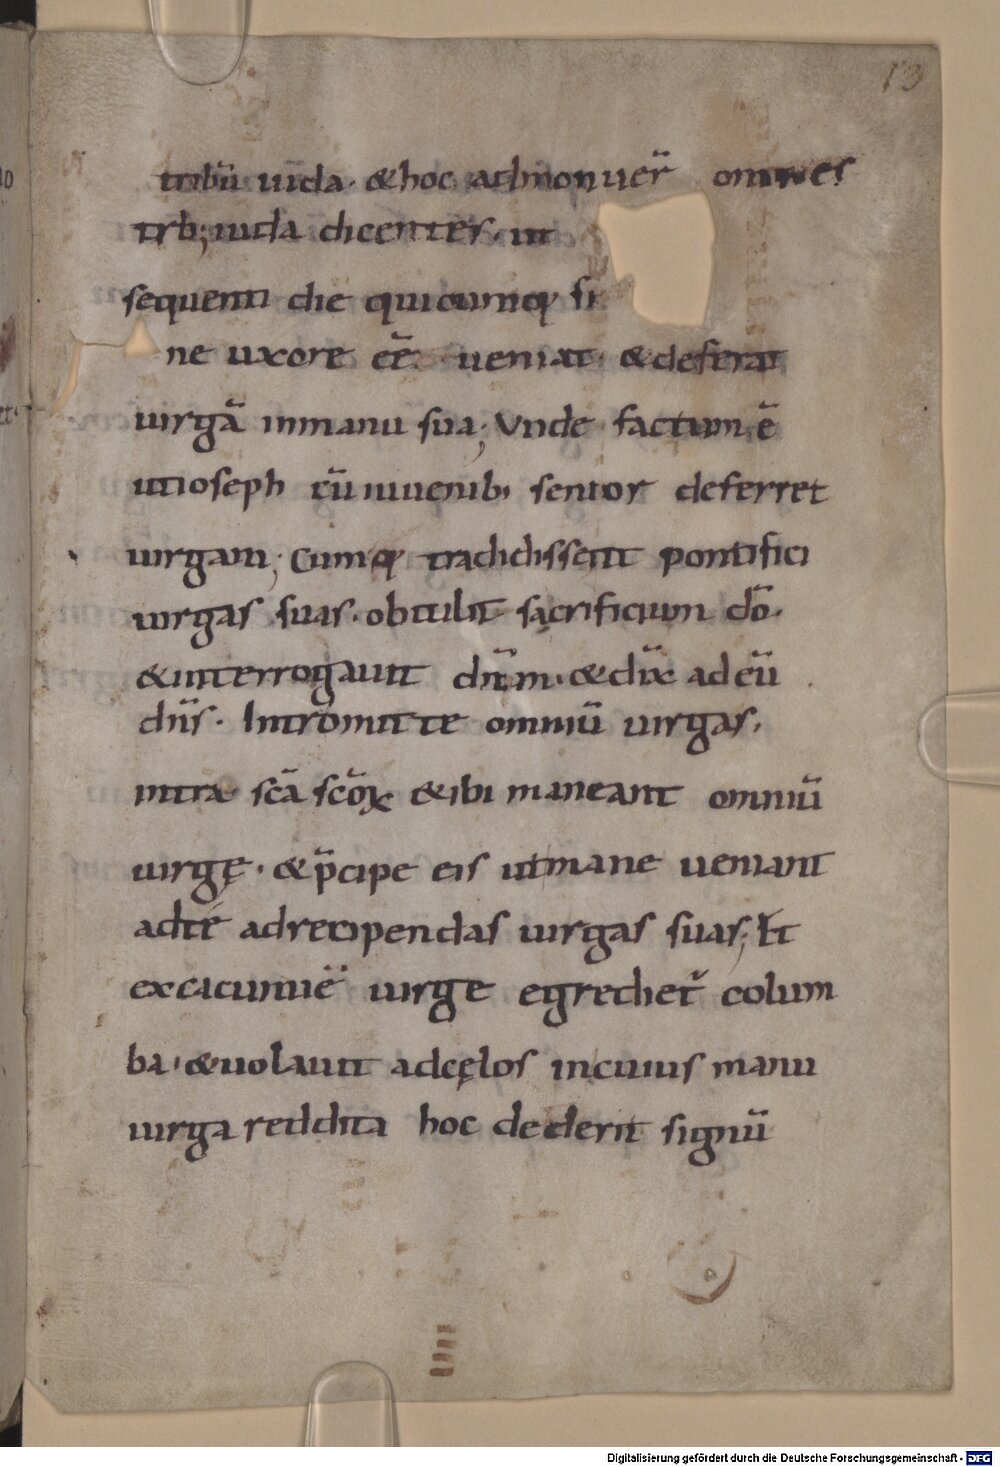 13
tribū iuda · & hoc admonuer̄ omnes
trib; iuda dicenter · ut
sequenti die quicumq; si
ne uxore eē ueniat · & deferat
uirgā inmanu sua; Vnde factum ē
utioseph cū iuuenib; senior deferret
uirgam; Cumq; tradidissent pontifici
uirgas suas · obtulit sacrificium dō ·
& interrogauit dn̄m · & dix̄ ad eū
dn̄s · Intromitte omniū uirgas ·
intra scā scōꝝ & ibi maneant omniū
uirgę · & p̄cipe eis utmane ueniant
adté adrecipendas uirgas suas; Et
excacumīē uirge egrediet̄ colum
ba · & uolauit adcęlos incuius manu
uirga reddita hoc dederit signū
Digitalisierung gefördert durch die Deutsche Forschungsgemeinschaft - DFG